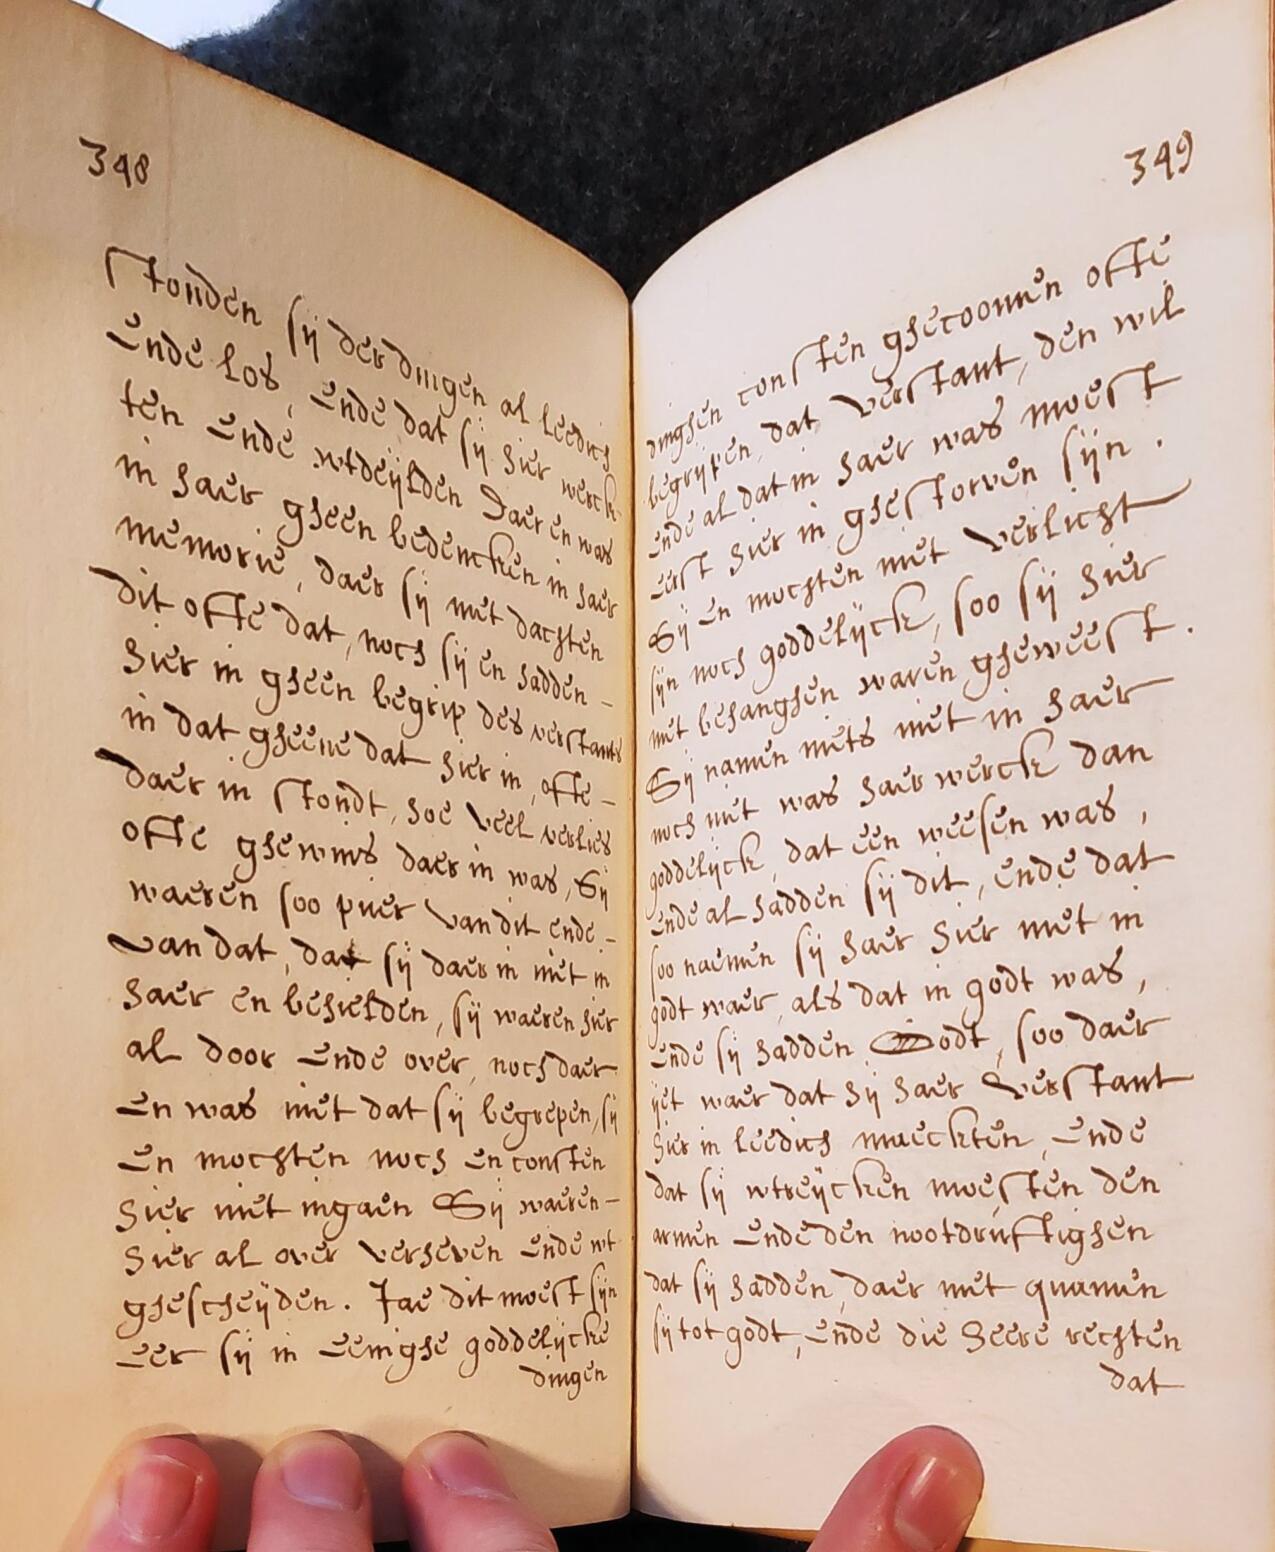 348
stonden sij der dingen al leedich
ende los, ende dat sij hier werck-
ten ende wtdeijlden Daer en was
in haer gheen bedencken in haer
memorie, daer sij niet dachten
dit ofte dat, noch sij en hadden -
hier in gheen begrip des verstants
in dat gheene dat hier in, ofte -
daer in stondt, hoe veel verlies
ofte ghewins daer in was, Sij
waeren soo puer van dit ende -
van dat, dat sij daer in niet in
haer en behielden, sij waeren hier
al door ende over, noch daer
en was niet dat sij begrepen, sij
en mochten noch en consten
hier niet ingaen Sij waeren -
hier al over verheven ende wt
ghescheijden. Jae dit moest sijn
eer sij in eenighe goddelijcke
dingen
349
dinghen consten ghecoomen ofte
begrijpen, dat verstant, den wil
ende al dat in haer was moest
eerst hier in ghestorven sijn.
Sij en mochten niet verlicht
sijn noch goddelijck, soo sij hier
met behanghen waren gheweest.
Sij namen niets niet in haer
noch niet was haer werck dan
goddelijck, dat een weesen was,
ende al hadden sij dit, ende dat
soo naemen sij haer hier niet in
godt waer, als dat in godt was,
ende sij hadden Godt, soo daer
ijet waer dat sij haer verstant
hier in leedich maeckten, ende
dat sij wtreijcken moesten den
armen ende den nootdruftighen
dat sij hadden, daer met quamen
sij tot godt, ende die Heere rechten
dat